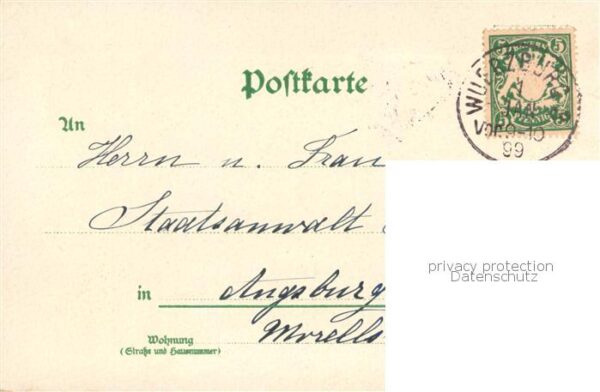 5 5
WUERZBURG
VOR. 9-10
99
PFENNIG
Postkarte
An
Herrn u. Frau
Staatsanwalt
privacy protection
Datenschutz
in Augsburg
Morells
Wohnung
(Straße und Hausnummer)